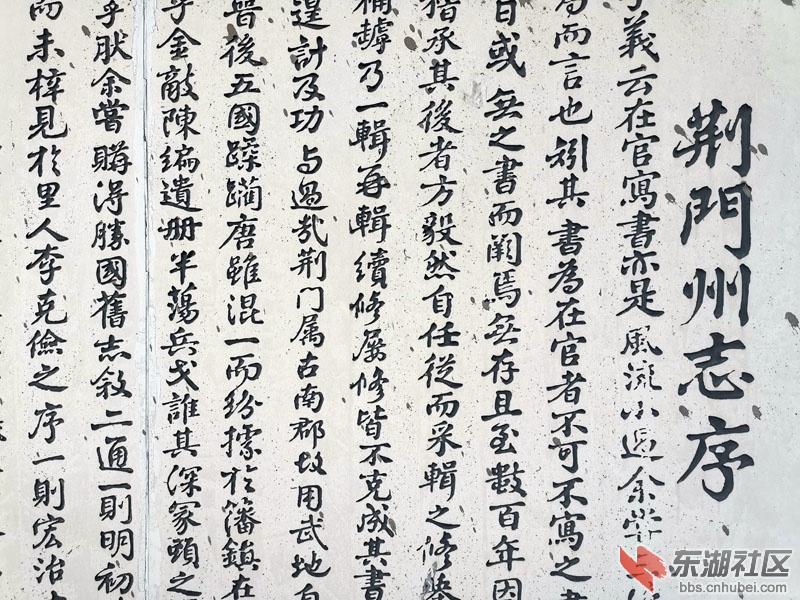 荆門州志序
義云在官寫書亦是風流小過余嘗
而言也矧其書為在官者不可不寫之
目或無之書而闕焉無存且至數百年因
承其後者方毅然自任從而采輯之修
乃一輯再輯續修屡修皆不克成其書
遑計及功与過㢤荆门属古南郡故用武地自
晉後五國蹂躪唐雖混一而紛據於籓鎮在
乎金敵陳编遺册半蕩兵戈誰其深冢頭之
乎肰余嘗購得勝國舊志敘二通一則明初
而未梓見於里人李克儉之序一則宏治
东湖社区
bbs.cnhubei.com